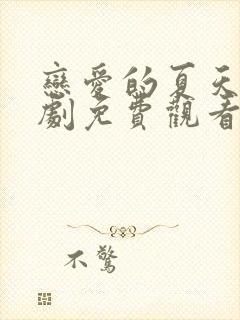 戀愛的夏天
劇免費觀看
不驚